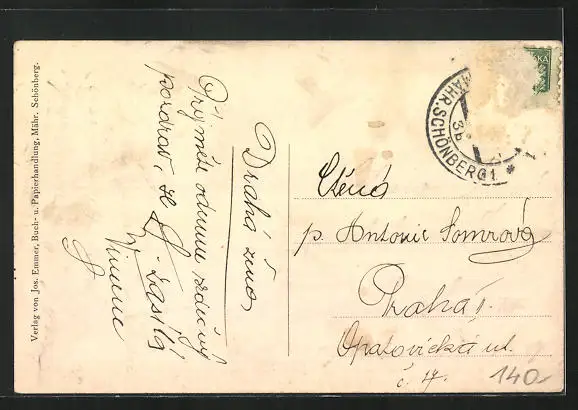 Verlag von Jos. Emmer, Buch- u. Papierhandlung, Mähr. Schönberg.
Drahá ženo,
Přijměte odemne srdečný
pozdrav,
MÄHR. SCHÖNBERG 1 *
3b
Ctěná
p. Antonie
Praha I.
Opatovická ul.
č. 17.
140-